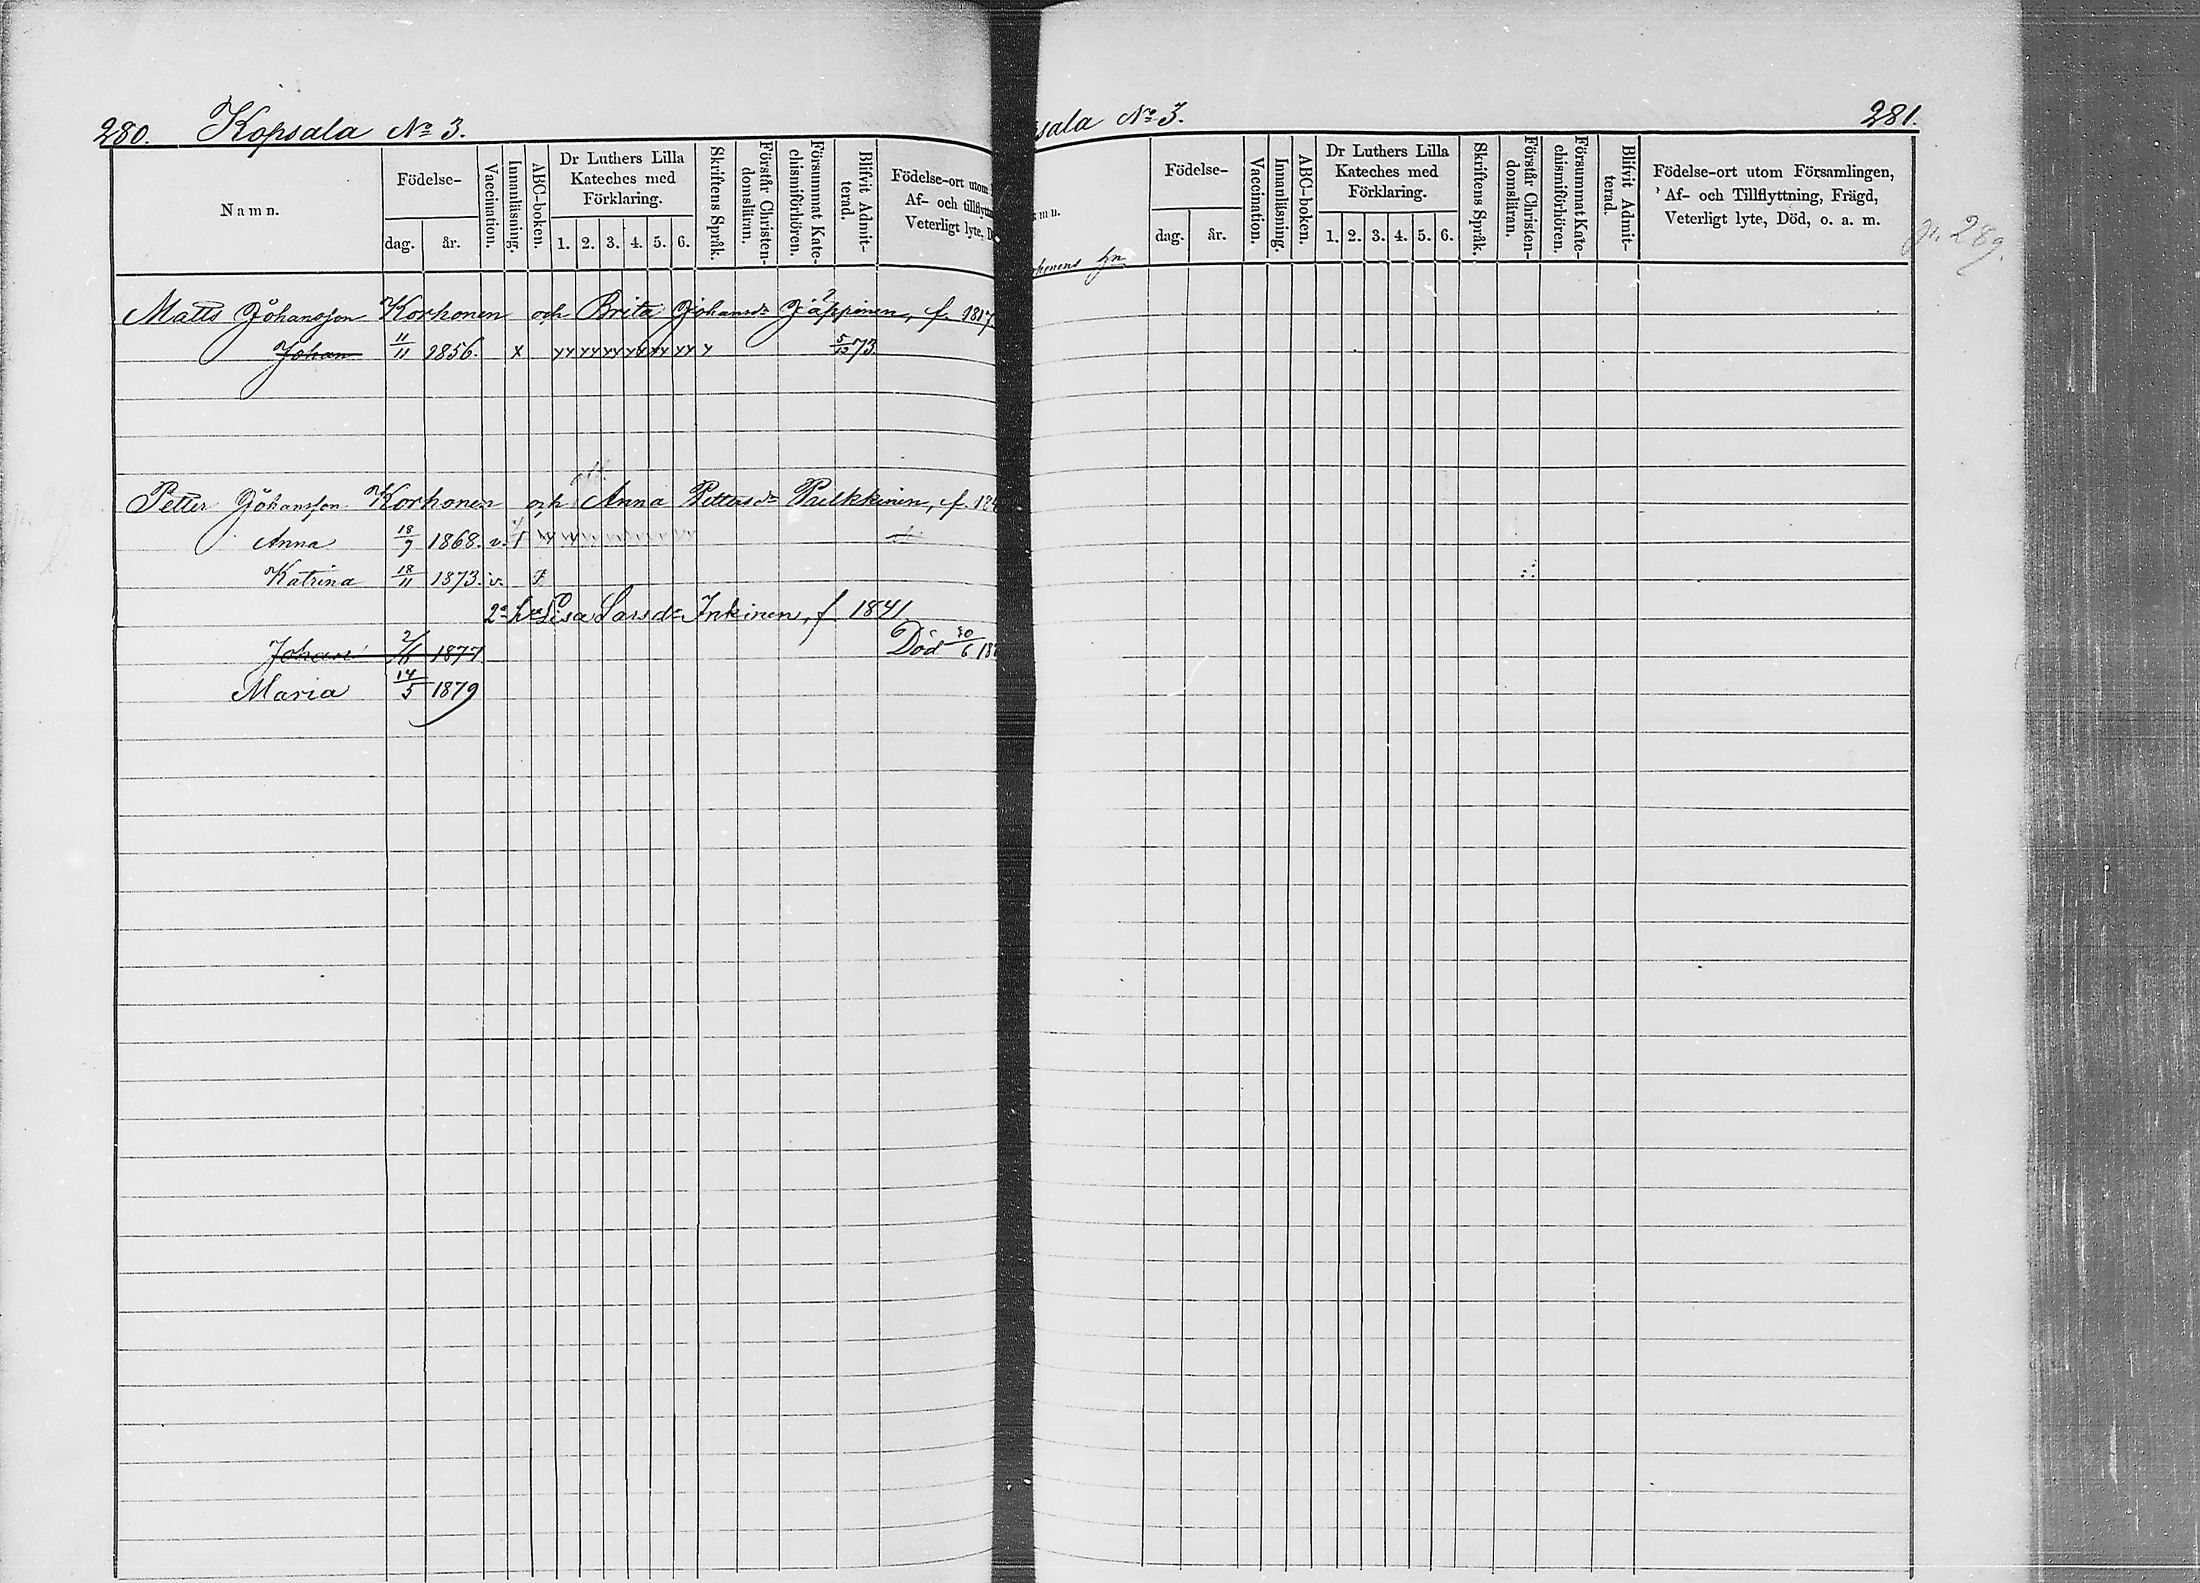 280. Kopsala № 3.
Namn.
Födelse-
dag. år.
Vaccination.
Innanläsning.
ABC-boken.
Dr Luthers Lilla
Kateches med
Förklaring.
1. 2. 3. 4. 5. 6.
Skriftens Språk.
Förstår Christen-
domsläran.
Försummat Kate-
chismiförhören.
Blifvit Admit-
terad.
Födelse-ort utom
Af- och tillflytt
Veterligt lyte, D
Matts Johansson Korhonen och Brita Johansdr Jäppinen, f. 1817.
Johan 11/11 1856. x yy yy yy yy yy yy y 5/12 73.
Petter Johansson Korhonen och Anna Pettersdr Pulkkinen, f.
Anna 18/9 1868. v.
Katrina 18/11 1873. v.
2a h. Lisa Larsdr Inkinen, f. 1841
Johan 1877 Död 30/6
Maria 14/5 1879
sala № 3. 281.
Födelse-
dag. år.
Vaccination.
Innanläsning.
ABC-boken.
Dr Luthers Lilla
Kateches med
Förklaring.
1. 2. 3. 4. 5. 6.
Skriftens Språk.
Förstår Christen-
domsläran.
Försummat Kate-
chismiförhören.
Blifvit Admit-
terad.
Födelse-ort utom Församlingen,
Af- och Tillflyttning, Frägd,
Veterligt lyte, Död, o. a. m.
p. 289.